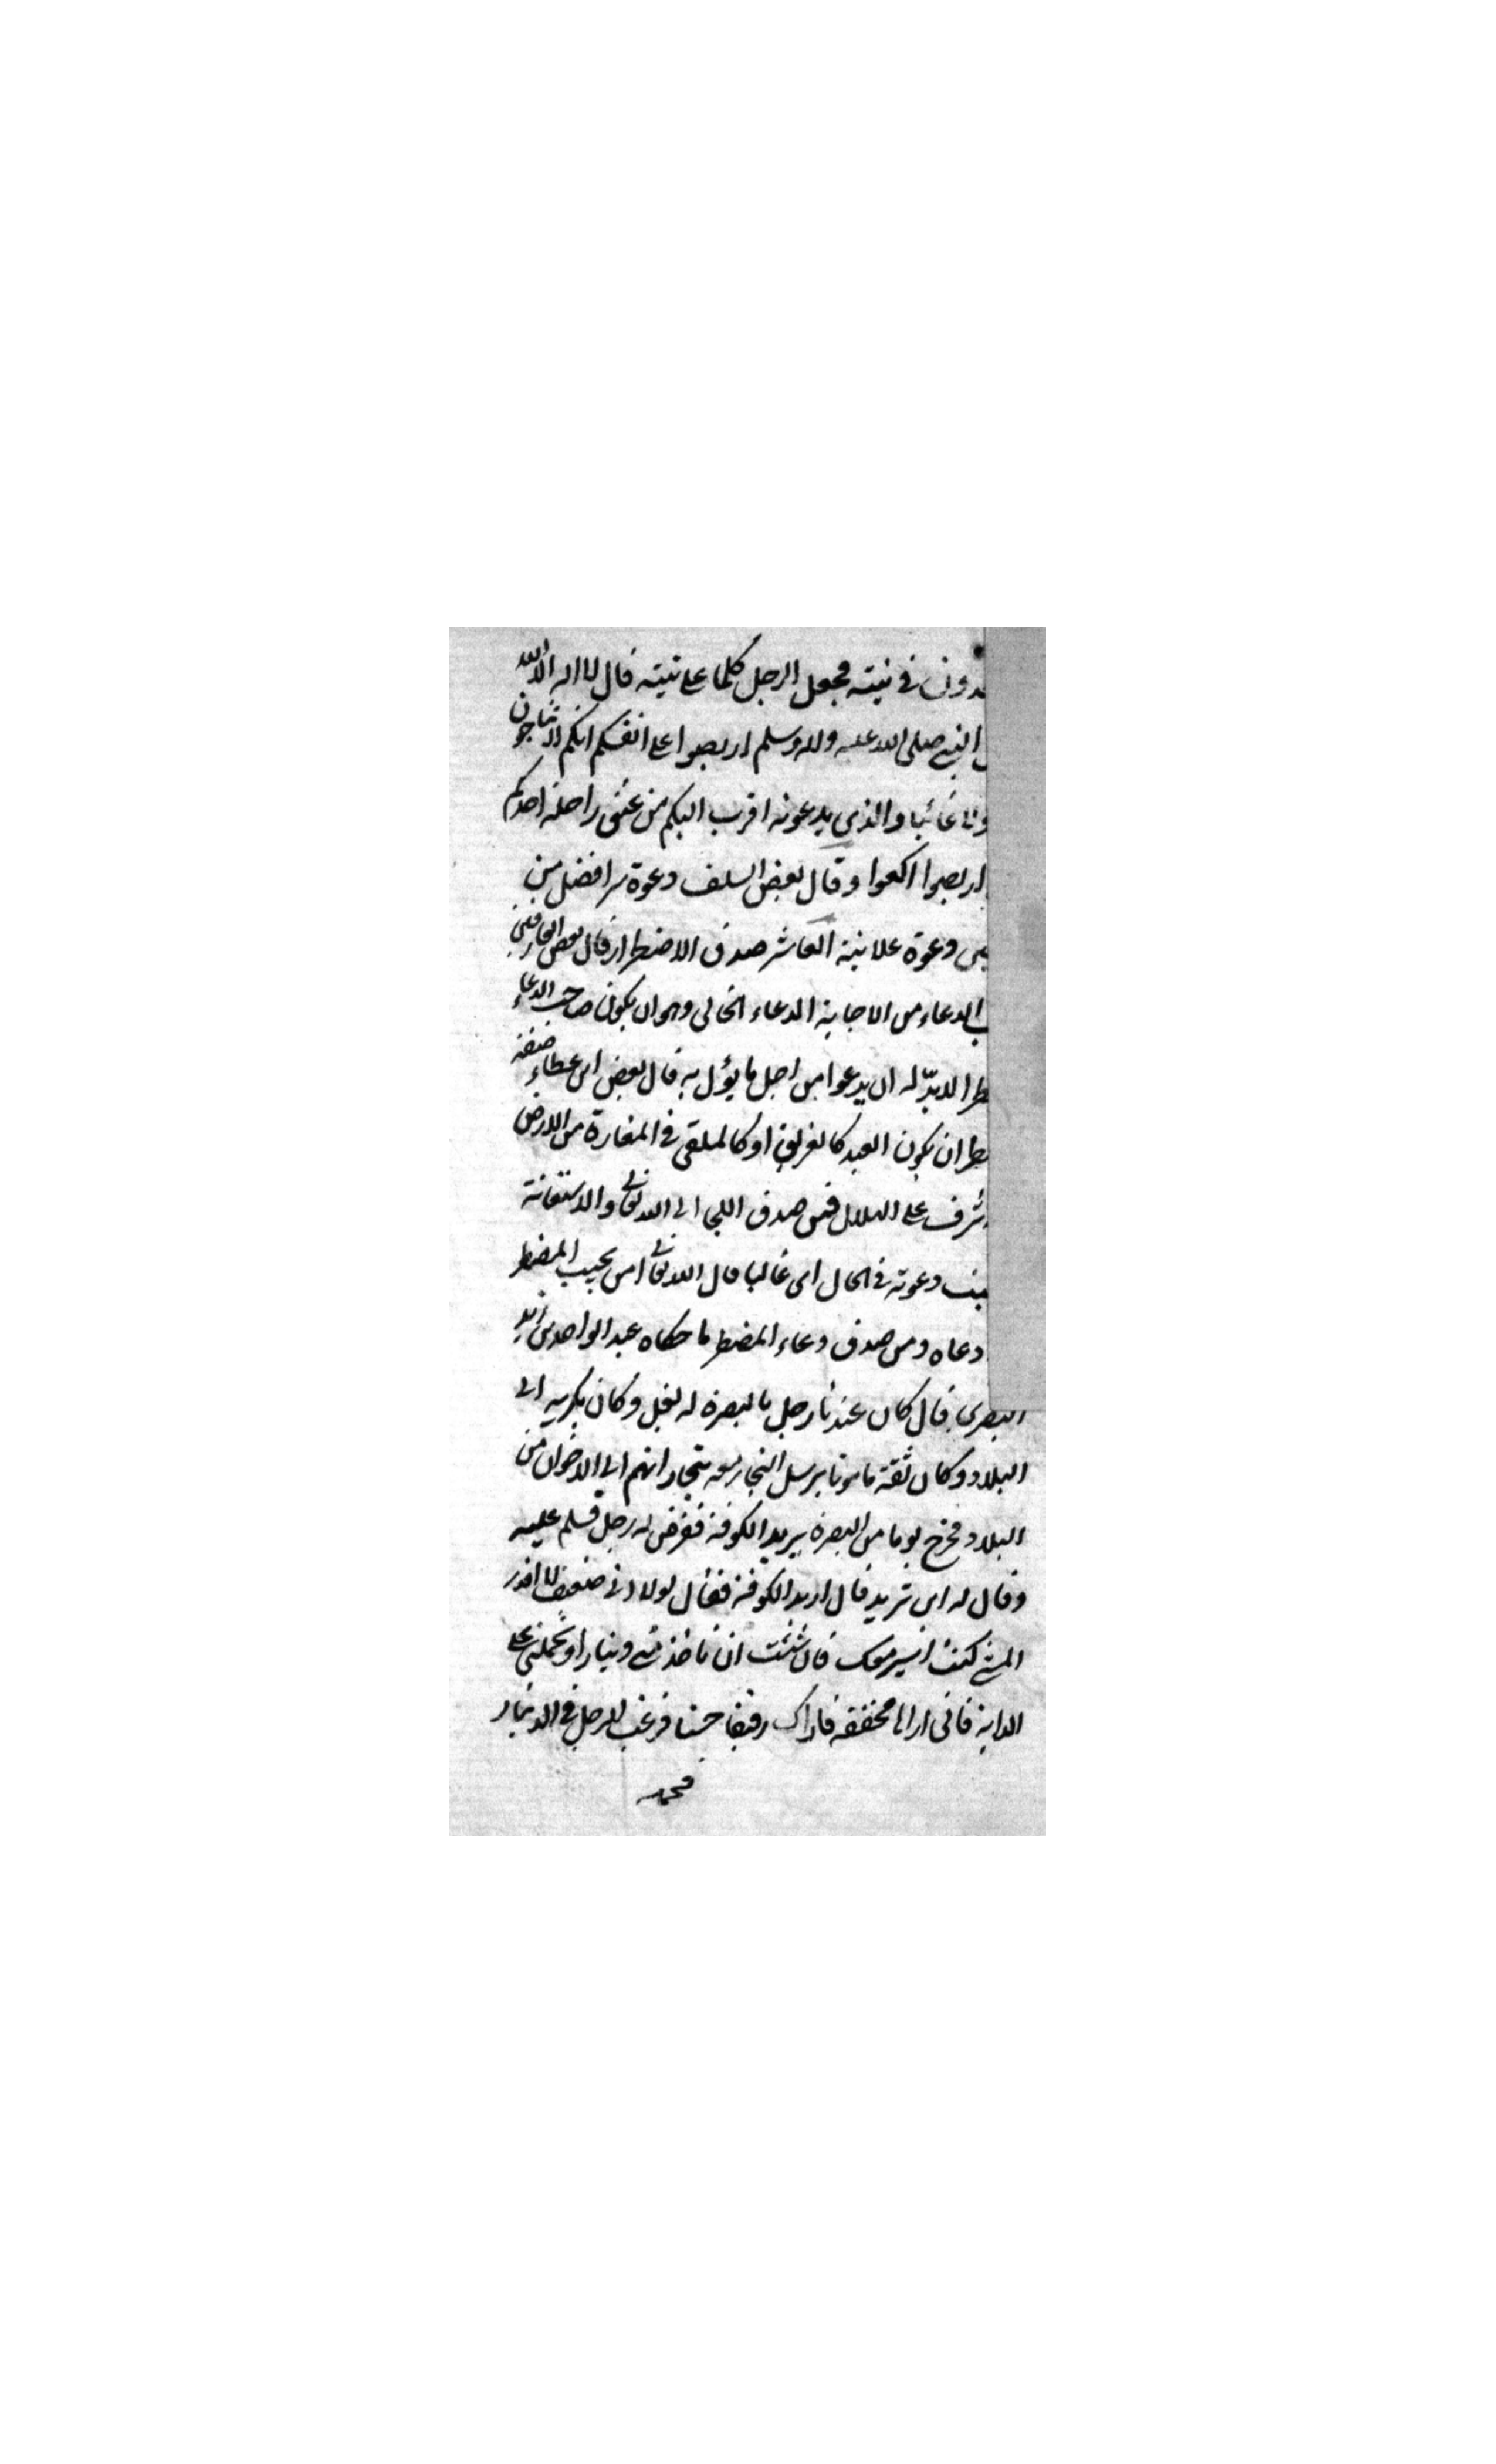 في نيته فجعل الرجل كلما على نيته قال لا اله الا الله
النبي صلى الله عليه واله وسلم اربعوا على انفسكم انكم لا تناجون
ولا غائبا والذي يدعونه اقرب اليكم من عنق راحلة احدكم
اربعوا اكفوا وقال بعض السلف دعوة سر افضل من
دعوة علانية العاشر صدق الاضطرار قال بعض العارفين
الدعاء من الاجابة الدعاء الحالى وهو ان يكون صاحب الدعاء
لا بدّ له ان يدعوا من اجل ما يؤل به قال بعض ابن عطاء صفة
ان يكون العبد كالغريق او كالملقى في المغارة من الارض
على الهلاك فمن صدق اللجا الى الله تعالى والاستغاثة
دعوته في الحال اى غالبا قال الله تعالى امن يجيب المضطر
دعاه ومن صدق دعاء المضطر ما حكاه عبد الواحد بن زيد
البصرى قال كان عندنا رجل بالبصرة له بغل وكان يكريه الى
البلاد وكان ثقة مامونا يرسل التجار معه تجاراتهم الى الاخوان من
البلاد فخرج يوما من البصرة يريد الكوفة فعرض له رجل فسلم عليه
وقال له اين تريد قال اريد الكوفة فقال لولا انى ضعيف لا اقدر
المشي كنت اسير معك فان شئت ان تاخذ مني دينارا وتحملني على
الدابة فانى اراها مخففة فاراك رفيقا حسنا فرغب الرجل في الدينار
فحمله